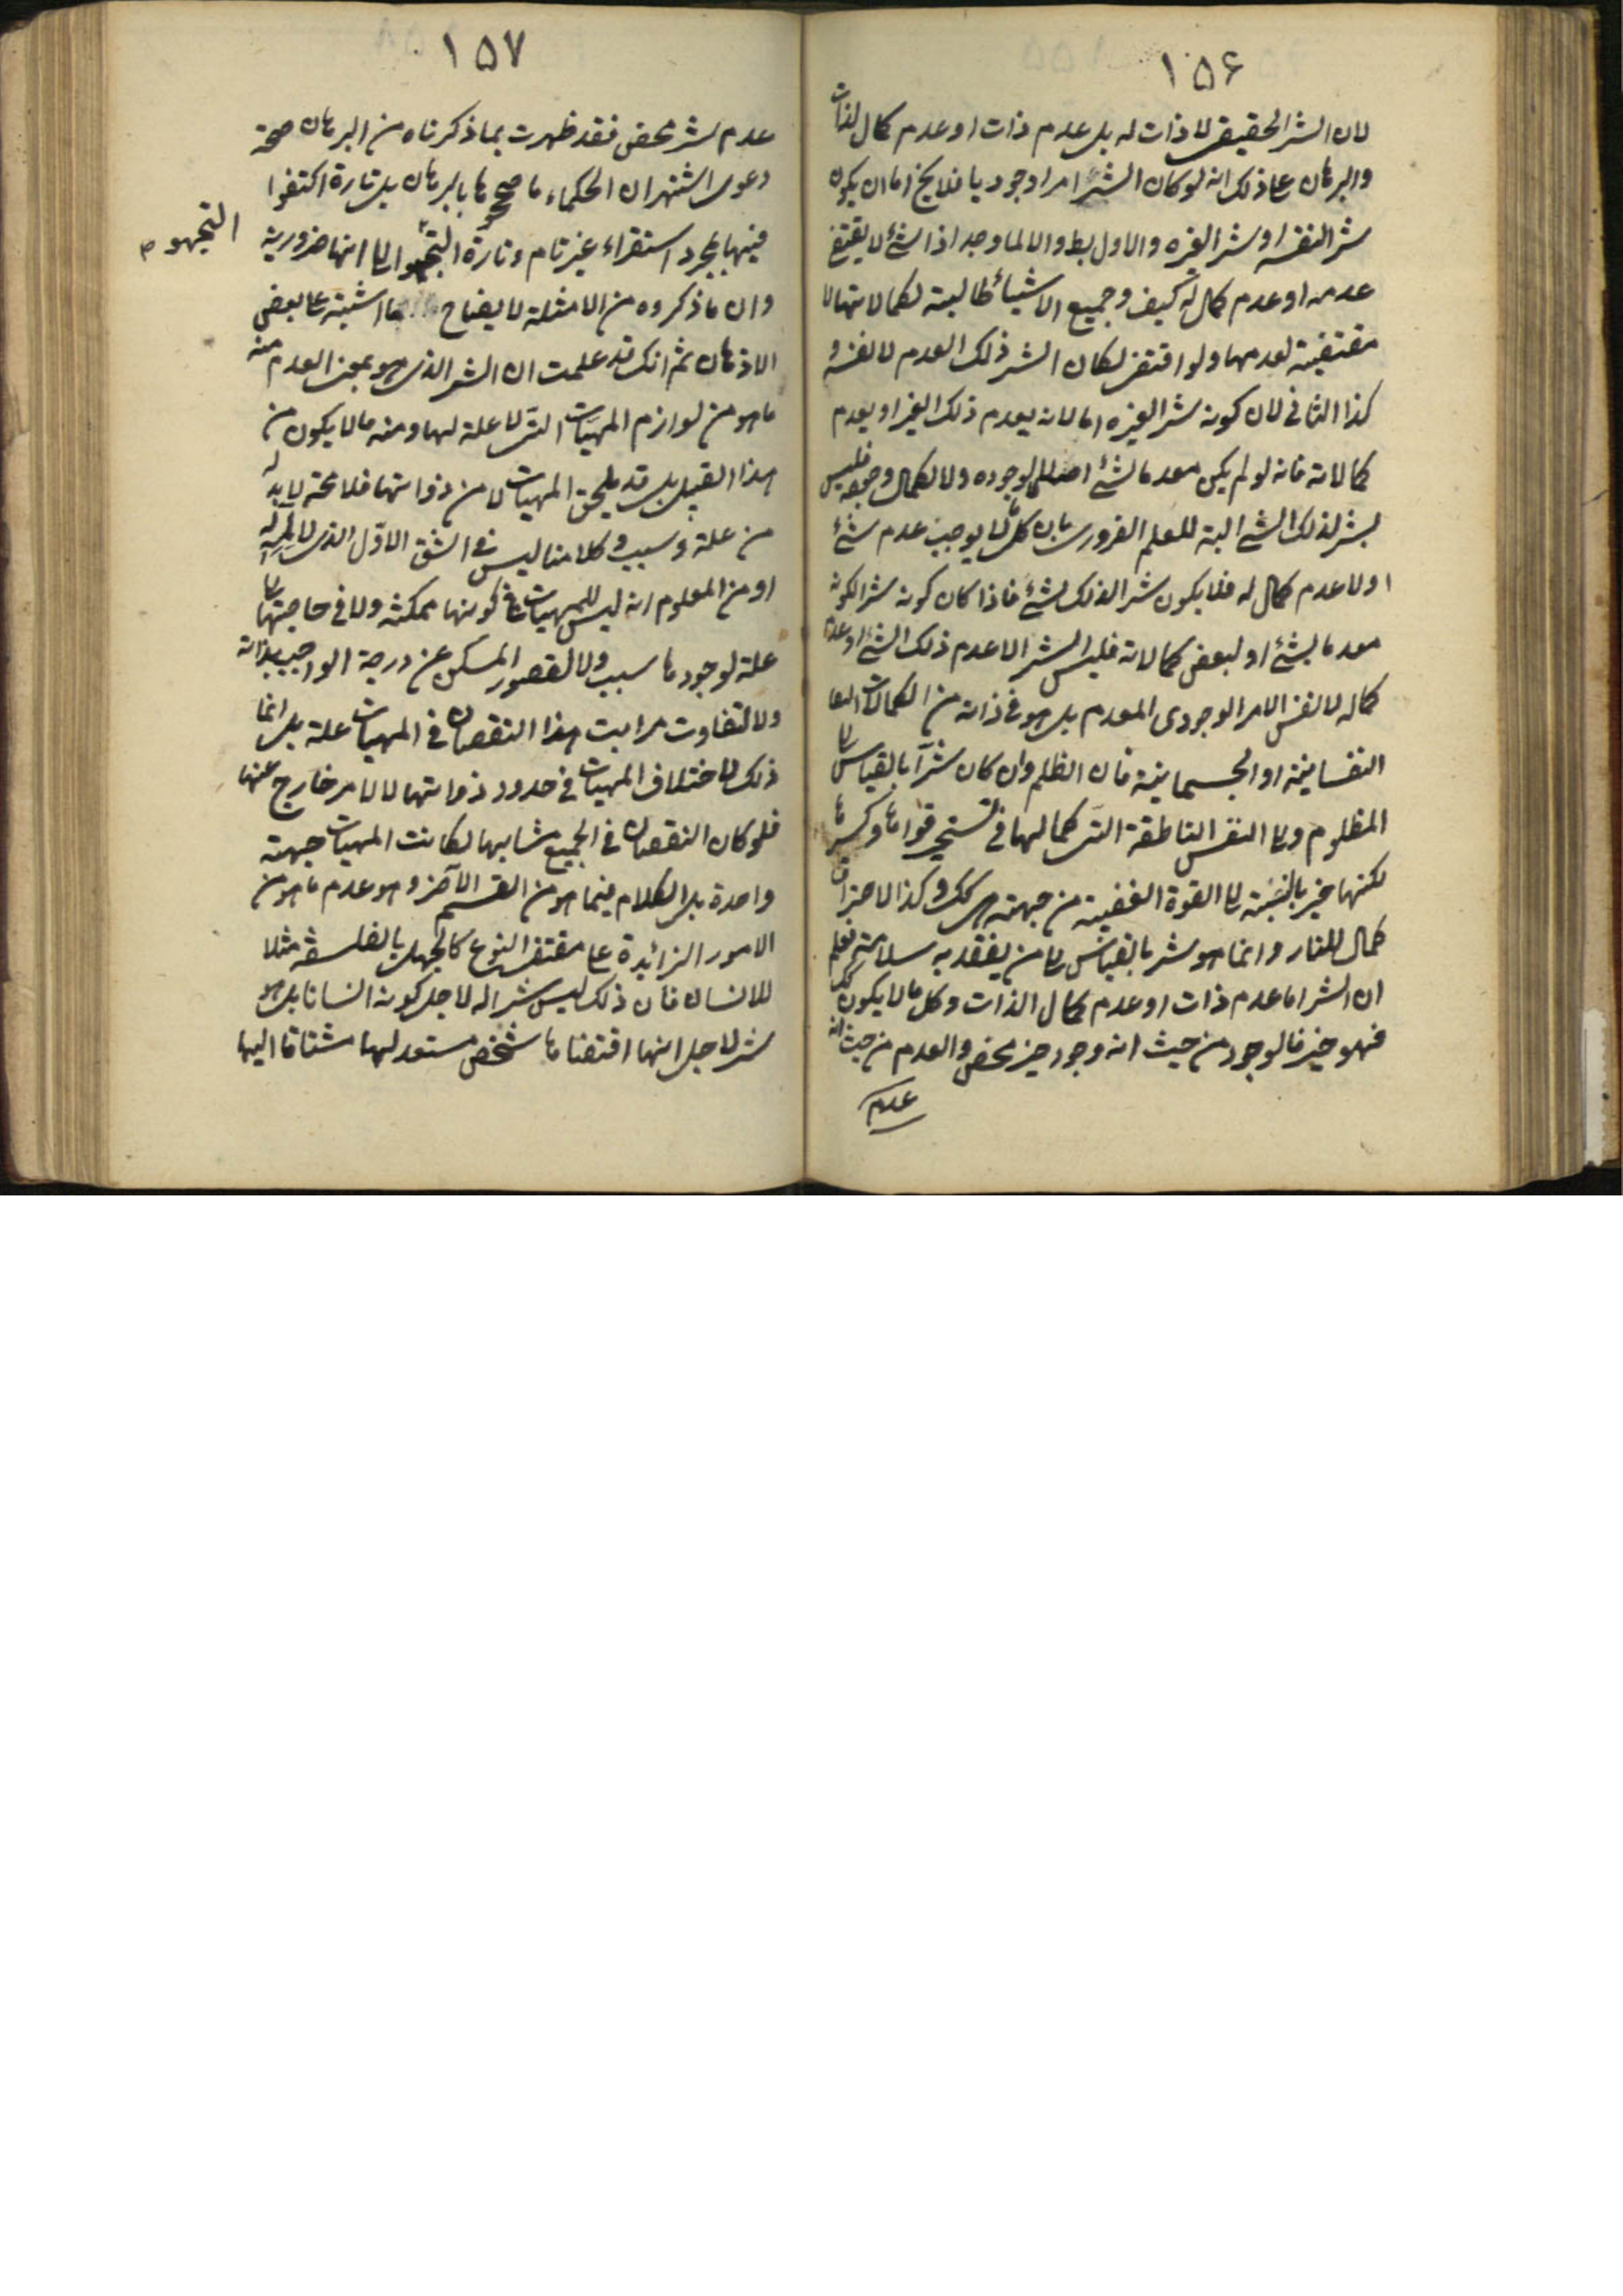 ١٥۶
لان الشر الحقيقى لا ذات له بل عدم ذات او عدم كمال لذات
والبرهان على ذلك انه لو كان الشر امرا وجوديا فلا يخ اما ان يكون
شرا لنفسه او شرا لغيره والاول بط والا لما وجد اذ الشئ لا يقتضى
عدمه او عدم كمال له كيف وجميع الاشياء طالبة لكمالاتها لا
مقتضية لعدمها ولو اقتضى لكان الشر ذلك العدم لا نفسه و
كذا الثانى لان كونه شرا لغيره اما لانه يعدم ذلك الغير او يعدم
كمالاته فانه لو لم يكن معدما لشئ اصلا لا لوجوده ولا لكمال وجوده فليس
بشر لذلك الشئ البتة للعلم الضرورى بان كل ما لا يوجب عدم شئ
و لا عدم كمال له فلا يكون شرا لذلك الشئ فاذا كان كونه شرا لكونه
معدما لشئ او لبعض كمالاته فليس الشر الا عدم ذلك الشئ او عدم
كماله لا نفس الامر الوجودى المعدم بل هو فى ذاته من الكمالات
النفسانية او الجسمانية فان الظلم وان كان شرآ بالقياس الى
المظلوم والى النفس الناطقة التى كمالها فى تسخير قواها وكسرها
لكنها خير بالنسبة الى القوة الغضبية من جهة هى كك وكذا الاحتراق
كمال للنار وانما هو شر بالقياس الى من يفقد به سلامته فعلم
ان الشر اما عدم ذات او عدم كمال الذات وكل ما لا يكون كك
فهو خير فالوجود من حيث انه وجود خير محض والعدم من حيث انه
عدم
١٥٧
عدم شر محض فقد ظهرت بما ذكرناه من البرهان صحة
دعوى اشتهر ان الحكماء ما صححوها بالبرهان بل تارة اكتفوا
فيها بمجرد استقراء غير تام وتارة التجئوا الى انها ضرورية
التجهو م
وان ما ذكروه من الامثلة لايضاح ما اشتبه على بعض
الاذهان ثم انك قد علمت ان الشر الذى هو بمعنى العدم منه
ما هو من لوازم المهيات التى لا علة لها ومنه ما لا يكون من
هذا القبيل بل قد يلحق المهيات لا من ذواتها فلا محة لا بد له
من علة وسبب وكلامنا ليس فى الشق الاول الذى لا لمية له
او من المعلوم انه ليس للمهيات فى كونها ممكنة ولا فى حاجتها الى
علة لوجودها سبب ولا لقصور الممكن عن درجة الواجب بذاته
ولا لتفاوت مراتب هذا النقصان فى المهيات علة بل انما
ذلك لاختلاف المهيات فى حدود ذواتها لا لامر خارج عنها
فلو كان النقصان فى الجميع متشابها لكانت المهيات جهة
واحدة بل الكلام فيما هو من القسم الآخر وهو عدم ما هو من
الامور الزائدة على مقتضى النوع كالجهل بالفلسفة مثلا
للانسان فان ذلك ليس شرا له لاجل كونه انسانا بل هو
شر لاجل انها اقتضاها شخص مستعد لها مشتاقا اليها